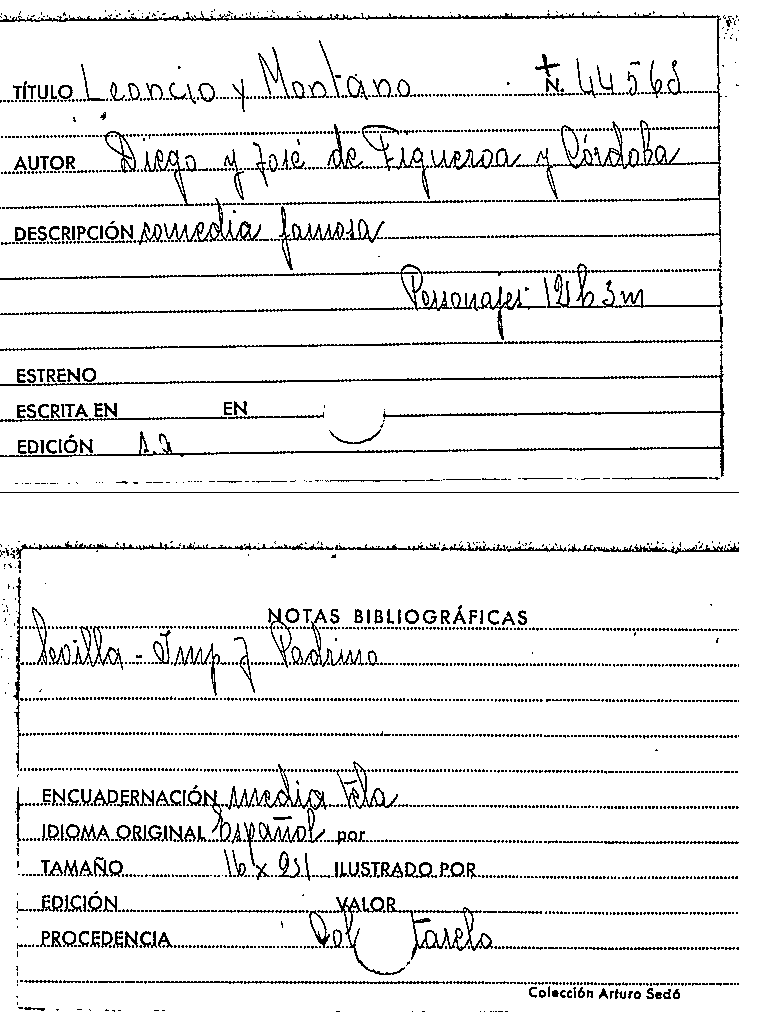 TÍTULO Leoncio y Montano N. 44568
AUTOR Diego y José de Figueroa y Córdoba
DESCRIPCIÓN comedia famosa
Personajes: 12h 3m
ESTRENO
ESCRITA EN EN
EDICIÓN s.a.
NOTAS BIBLIOGRÁFICAS
Sevilla - Imp J Padrino
ENCUADERNACIÓN media tela
IDIOMA ORIGINAL Español por
TAMAÑO ILUSTRADO POR
EDICIÓN VALOR
PROCEDENCIA
Colección Arturo Sedó